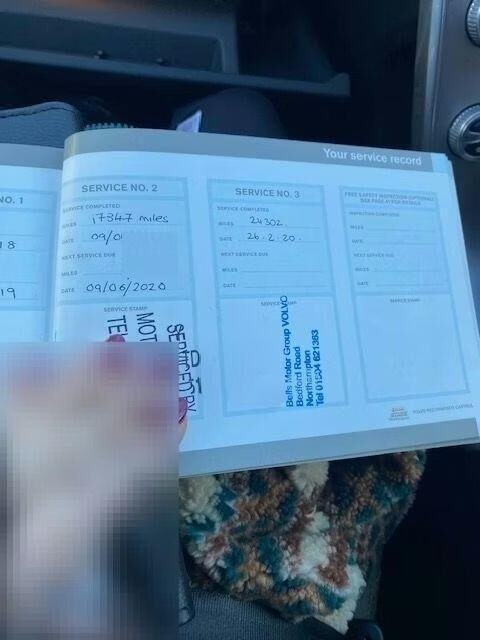 Your service record
NO. 1
8
19
SERVICE NO. 2
SERVICE COMPLETED
MILES 17347 miles
DATE 09/0
NEXT SERVICE DUE
MILES
DATE 09/06/2020
SERVICE STAMP
SERVICED BY
MOT
TEL
SERVICE NO. 3
SERVICE COMPLETED
MILES 24302
DATE 26.2.20.
NEXT SERVICE DUE
MILES
DATE
SERVICE STAMP
Bells Motor Group VOLVO
Bedford Road
Northampton
Tel 01604 621363
FREE SAFETY INSPECTION (OPTIONAL)
SEE PAGE 41 FOR DETAILS
INSPECTION COMPLETED
MILES
DATE
NEXT SERVICE DUE
MILES
DATE
SERVICE STAMP
YOUR RECOMMENDED CASTROL